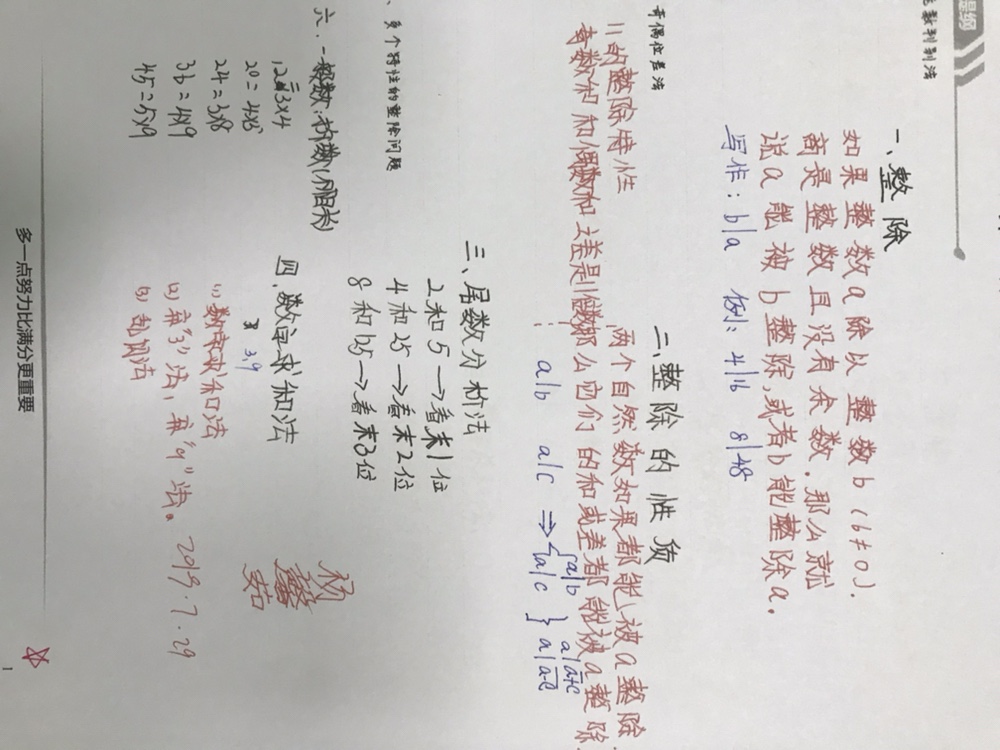 提纲
数判别法
一、整除
如果整数a除以整数b(b≠0).
商是整数且没有余数.那么就
说a能被b整除,或者b能整除a。
写作：b|a 例：4|16 8|48
奇偶位差法
二、整除的性质
两个自然数如果都能被a整除
11的整除特性
奇数和和偶数和之差是11倍数
那么它们的和或差都能被a整除.
a|b a|c ⇒ { a|b
a|c }
三、尾数分析法
2和5→看末1位
4和25→看末2位
8和125→看末3位
、多个特性的整除问题
四、数字求和法
3,9
(1)数字求和法
(2)弃"3"法，弃"9"法。2019.7.29
(3)
六．一般数：拆数(分解法)
12=3×4
20=4×5
24=3×8
36=4×9
45=5×9
多一点努力比满分更重要
1